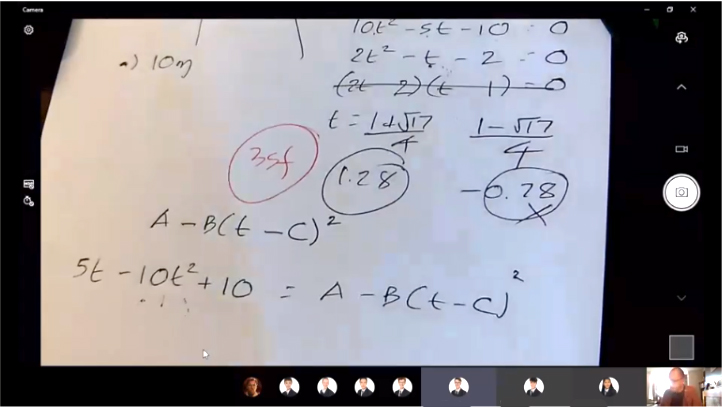 Camera
10t² - 5t - 10 = 0
a) 10m
2t² - t - 2 = 0
(2t 2)(t 1) = 0
t = 1+√17/4 1-√17/4
3sf 1.28 -0.78
A - B(t - C)²
5t - 10t² + 10 = A - B(t - C)²